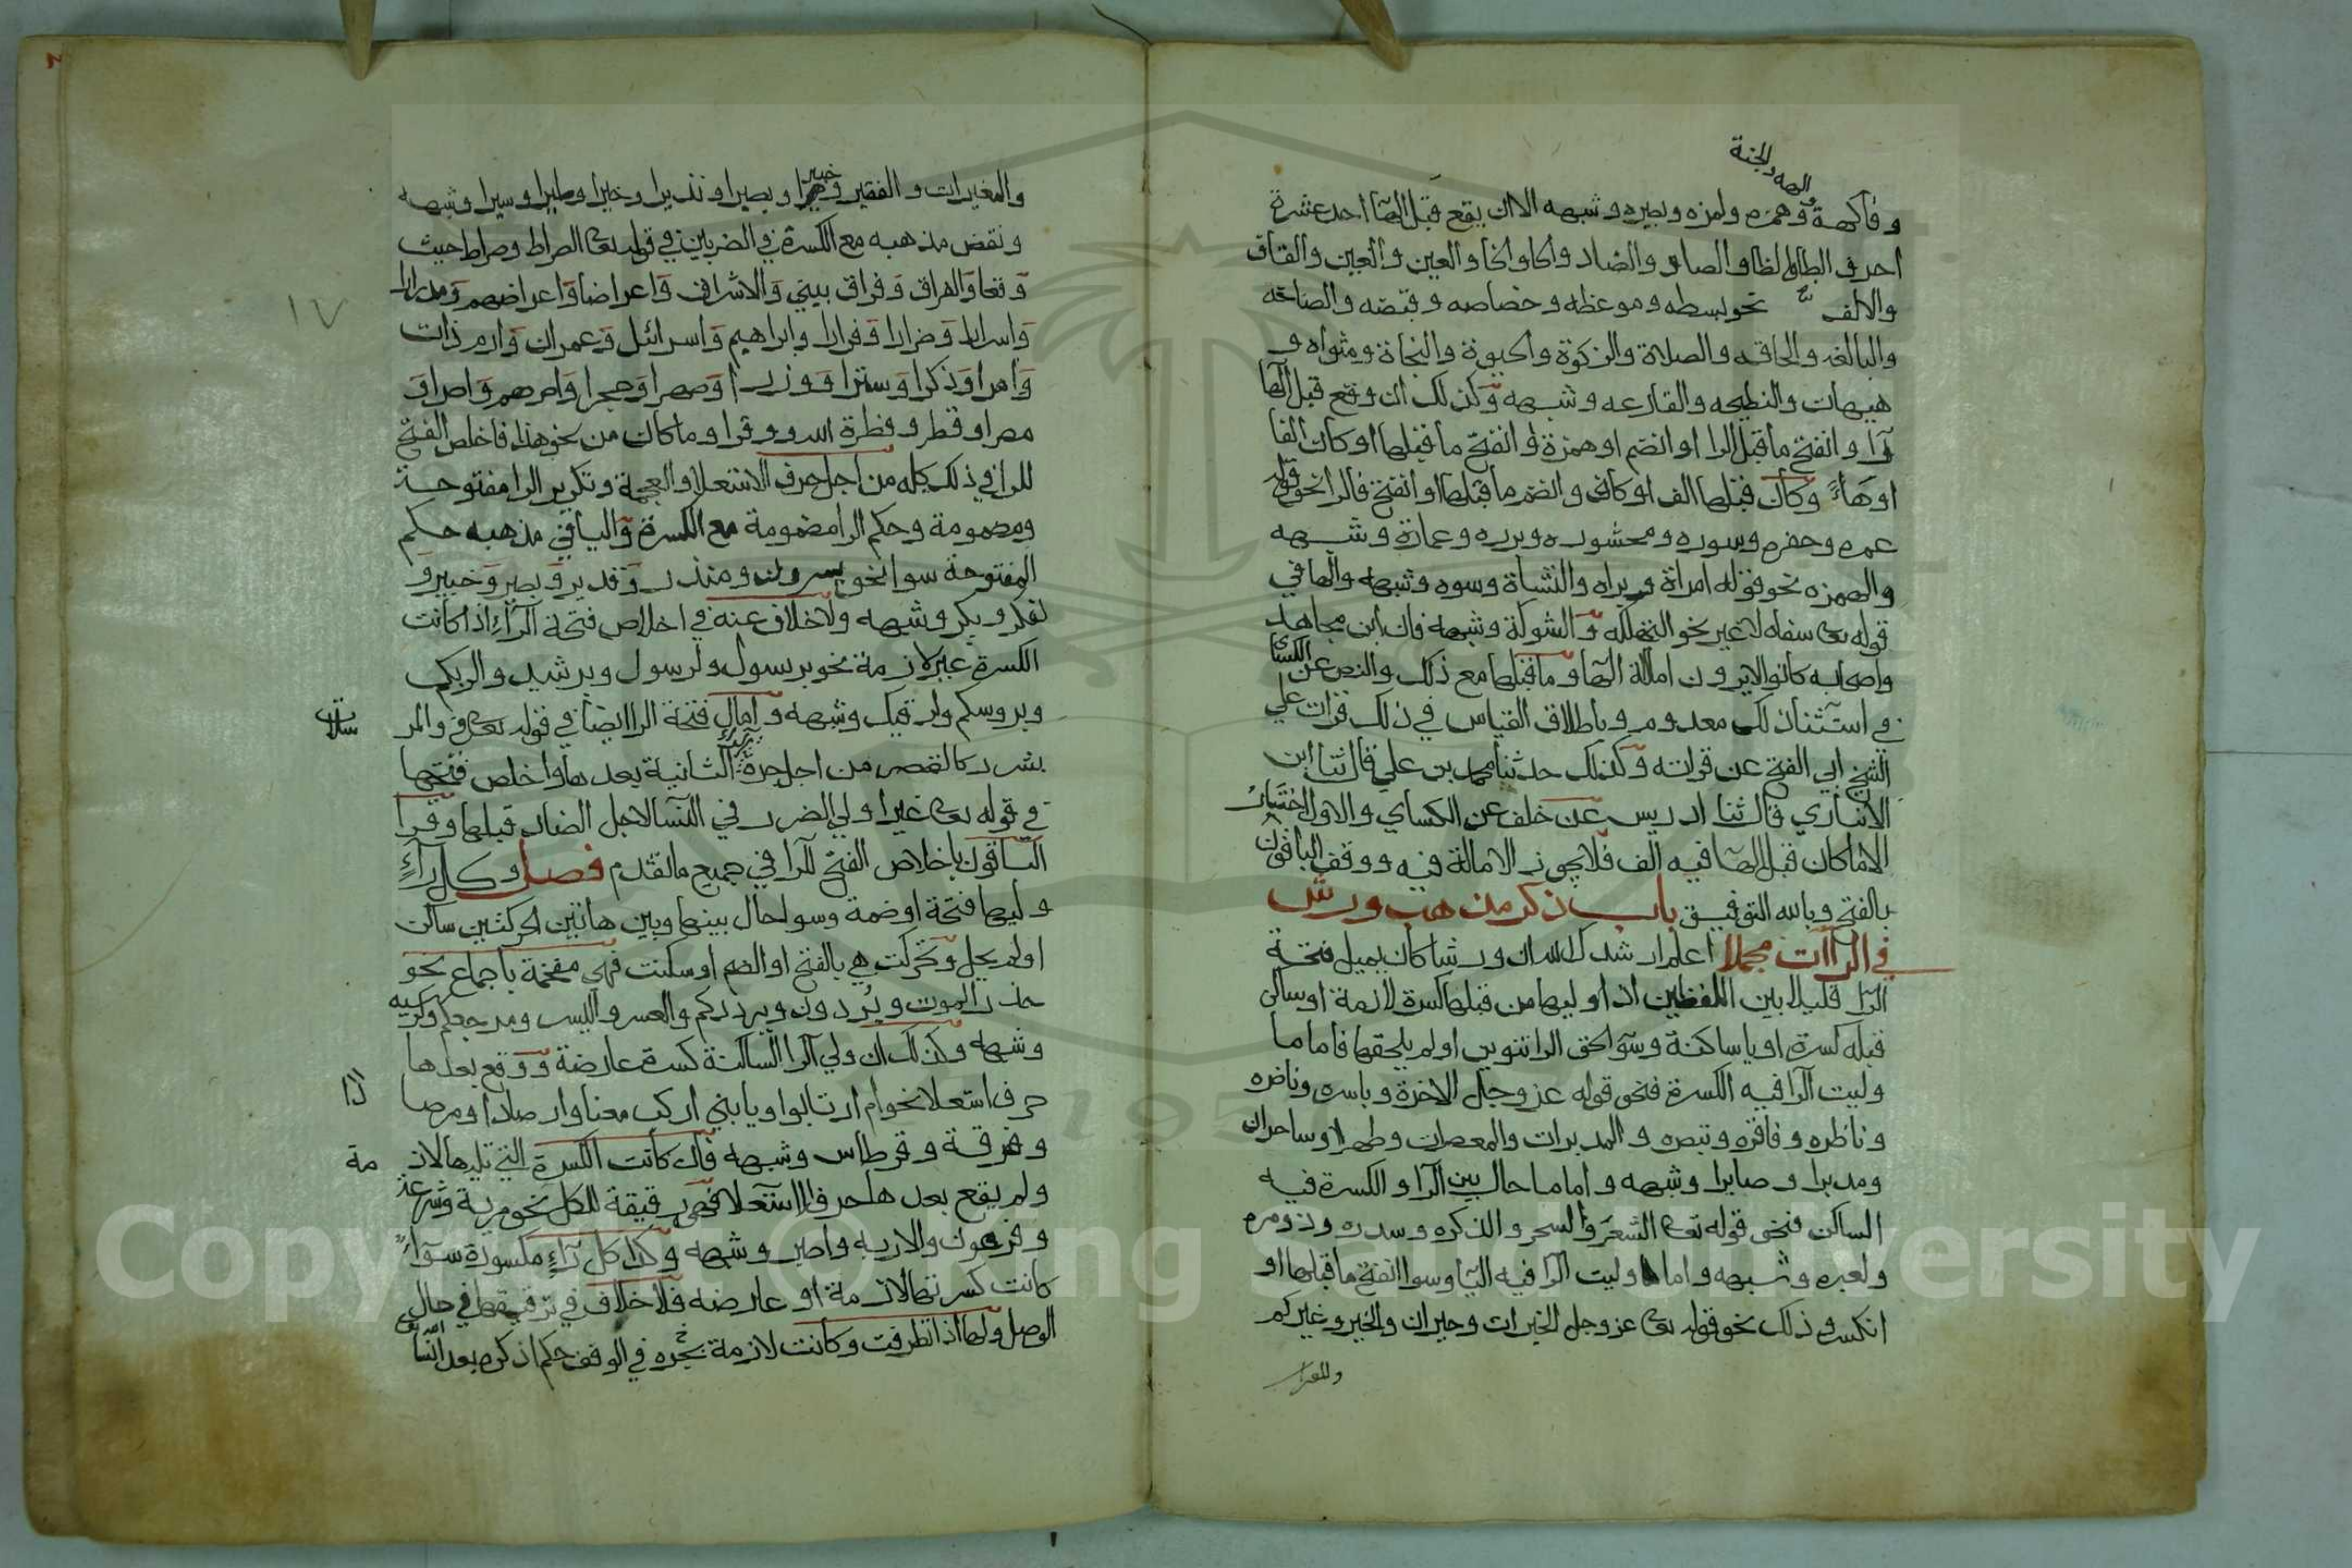 الهه والجنة
و فاكهة و همزه ولمزه وبصيره وشبهه الا ان يقع قبل الها احد عشرة
احرف الطا والظا والصاد والضاد والحا والخا والعين والغين والقاف
والالف نحو بسطه وموعظه وخصاصه وقبضه والصاخه
والبالغه والحاقه والصلاة والزكوة والحيوة والنجاة ومثواه و
هيهات والنطيحه والقارعه وشبهه وكذلك ان وقع قبل الها
رآ وانفتح ما قبل الرا او انضم او همزة وانفتح ما قبلها او كان الفا
او هاءً وكان قبلها الف او كاف وانضم ما قبلها او انفتح فالرا نحو قوله
عمره وحفره وسوره ومحشوره وبرره وعمارة وشبهه
والهمزه نحو قوله امراة وبراه والنشأة وسوه وشبهه والها في
قوله تعا سفاهه لا غير نحو التهلكه والشوكة وشبهه فان ابن مجاهد
واصحابه كانوا لا يرون امالة الها وما قبلها مع ذلك والنص عن الكساي
في استثنا ذلك معدوم وباطلاق القياس في ذلك قرات علي
الشيخ ابي الفتح عن قراته وكذلك حدثنا محمد بن علي قال ثنا ابن
الانباري قال ثنا ادريس عن خلف عن الكساي والاول اختيار
الا ما كان قبل الها فيه الف فلا يجوز الامالة فيه ووقف الباقون
بالفتح وبالله التوفيق باب ذكر مذهب ورش
في الرآات مجملا اعلم ارشدك الله ان ورشا كان يميل فتحة
الرا قليلا بين اللفظين اذا وليها من قبلها كسرة لازمة او ساكن
قبله كسرة او يا ساكنة وسوا لحق الرا تنوين او لم يلحقها فاما ما
وليت الرا فيه الكسرة فنحو قوله عز وجل الاخرة وباسره وناضره
وناظره وفاقره وتبصره والمدبرات والمعصرات وطهرا وساحران
ومدبرا وصابرا وشبهه واما ما حال بين الرا والكسرة فيه
الساكن فنحو قوله تعا الشعر والسحر والذكره وسدره وذو مره
ولعبره وشبهه واما ما وليت الرا فيه اليا وسوا انفتح ما قبلها او
انكسر وذلك نحو قوله تعا عز وجل الخيرات وحيران والخير وغيركم
والمغيرات
١٧
والمغيرات و الفقير وخبيرا وبصيرا ونذيرا وخيرا وطيرا وسيرا وشبهه
ونقض مذهبه مع الكسرة في الضربين في قوله تعا الصراط وصراط حيث
وقعا والفراق وفراق بيني والاشراق واعراضا واعراضهم ومدرارا
واسرارا وضرارا وفرارا وابراهيم واسرائل وعمران وارم ذات
وامرا وذكرا وسترا ووزرا وصهرا وحجرا واصرهم واصرا و
مصرا وقطر وفطرة الله ووقرا وما كان من نحو هذا فاخلص الفتح
للرا في ذلك كله من اجل حرف الاستعلا والعجمة وتكرير الرا مفتوحة
ومضمومة وحكم الرا مضمومة مع الكسرة واليا في مذهبه حكم
المفتوحة سوا نحو يسرون ومنذر وقدير وبصير وخبير و
لذكر وبكر وشبهه ولا خلاف عنه في اخلاص فتحة الرآء اذا كانت
الكسرة غير لازمة نحو برسول ولرسول وبرشيد ولربكم
وبروسكم ولرقيك وشبهه وامال فتحة الرا ايضا في قوله تعا في والمر سلات
بشرر كالقصر من اجل جرة الرا الثانية بعدها واخلص فتحها
في قوله تعا غير اولي الضرر في النسا لاجل الضاد قبلها وقرا
الباقون باخلاص الفتح للرا في جميع ما تقدم فصل وكل رآءٍ
وليها فتحة او ضمة وسوا حال بينها وبين هاتين الحركتين ساكن
او لم يحل وتحركت هي بالفتح او الضم او سكنت فهي مفخمة باجماع نحو
حذر الموت ويُردون ويرددكم والعسر واليسر ومرجعكم وكرسيه
وشبهه وكذلك ان ولي الرا الساكنة كسرة عارضة ووقع بعدها
حرف استعلا نحو ام ارتابوا ويا بني اركب معنا وارصادا ومرصا دا
وفرقة وقرطاس وشبهه فان كانت الكسرة التي تليها لاز مة
ولم يقع بعدها حرف استعلا فهي رقيقة للكل نحو مرية وشرعة
وفرعون والاربه واصبر وشبهه وكذا كل رآءٍ مكسورة سوآءً
كانت كسرتها لازمة او عارضه فلا خلاف في ترقيقها في حال
الوصل ولها اذا تطرفت وكانت لازمة نحوه في الوقف حكم اذكره بعد ان شا الله